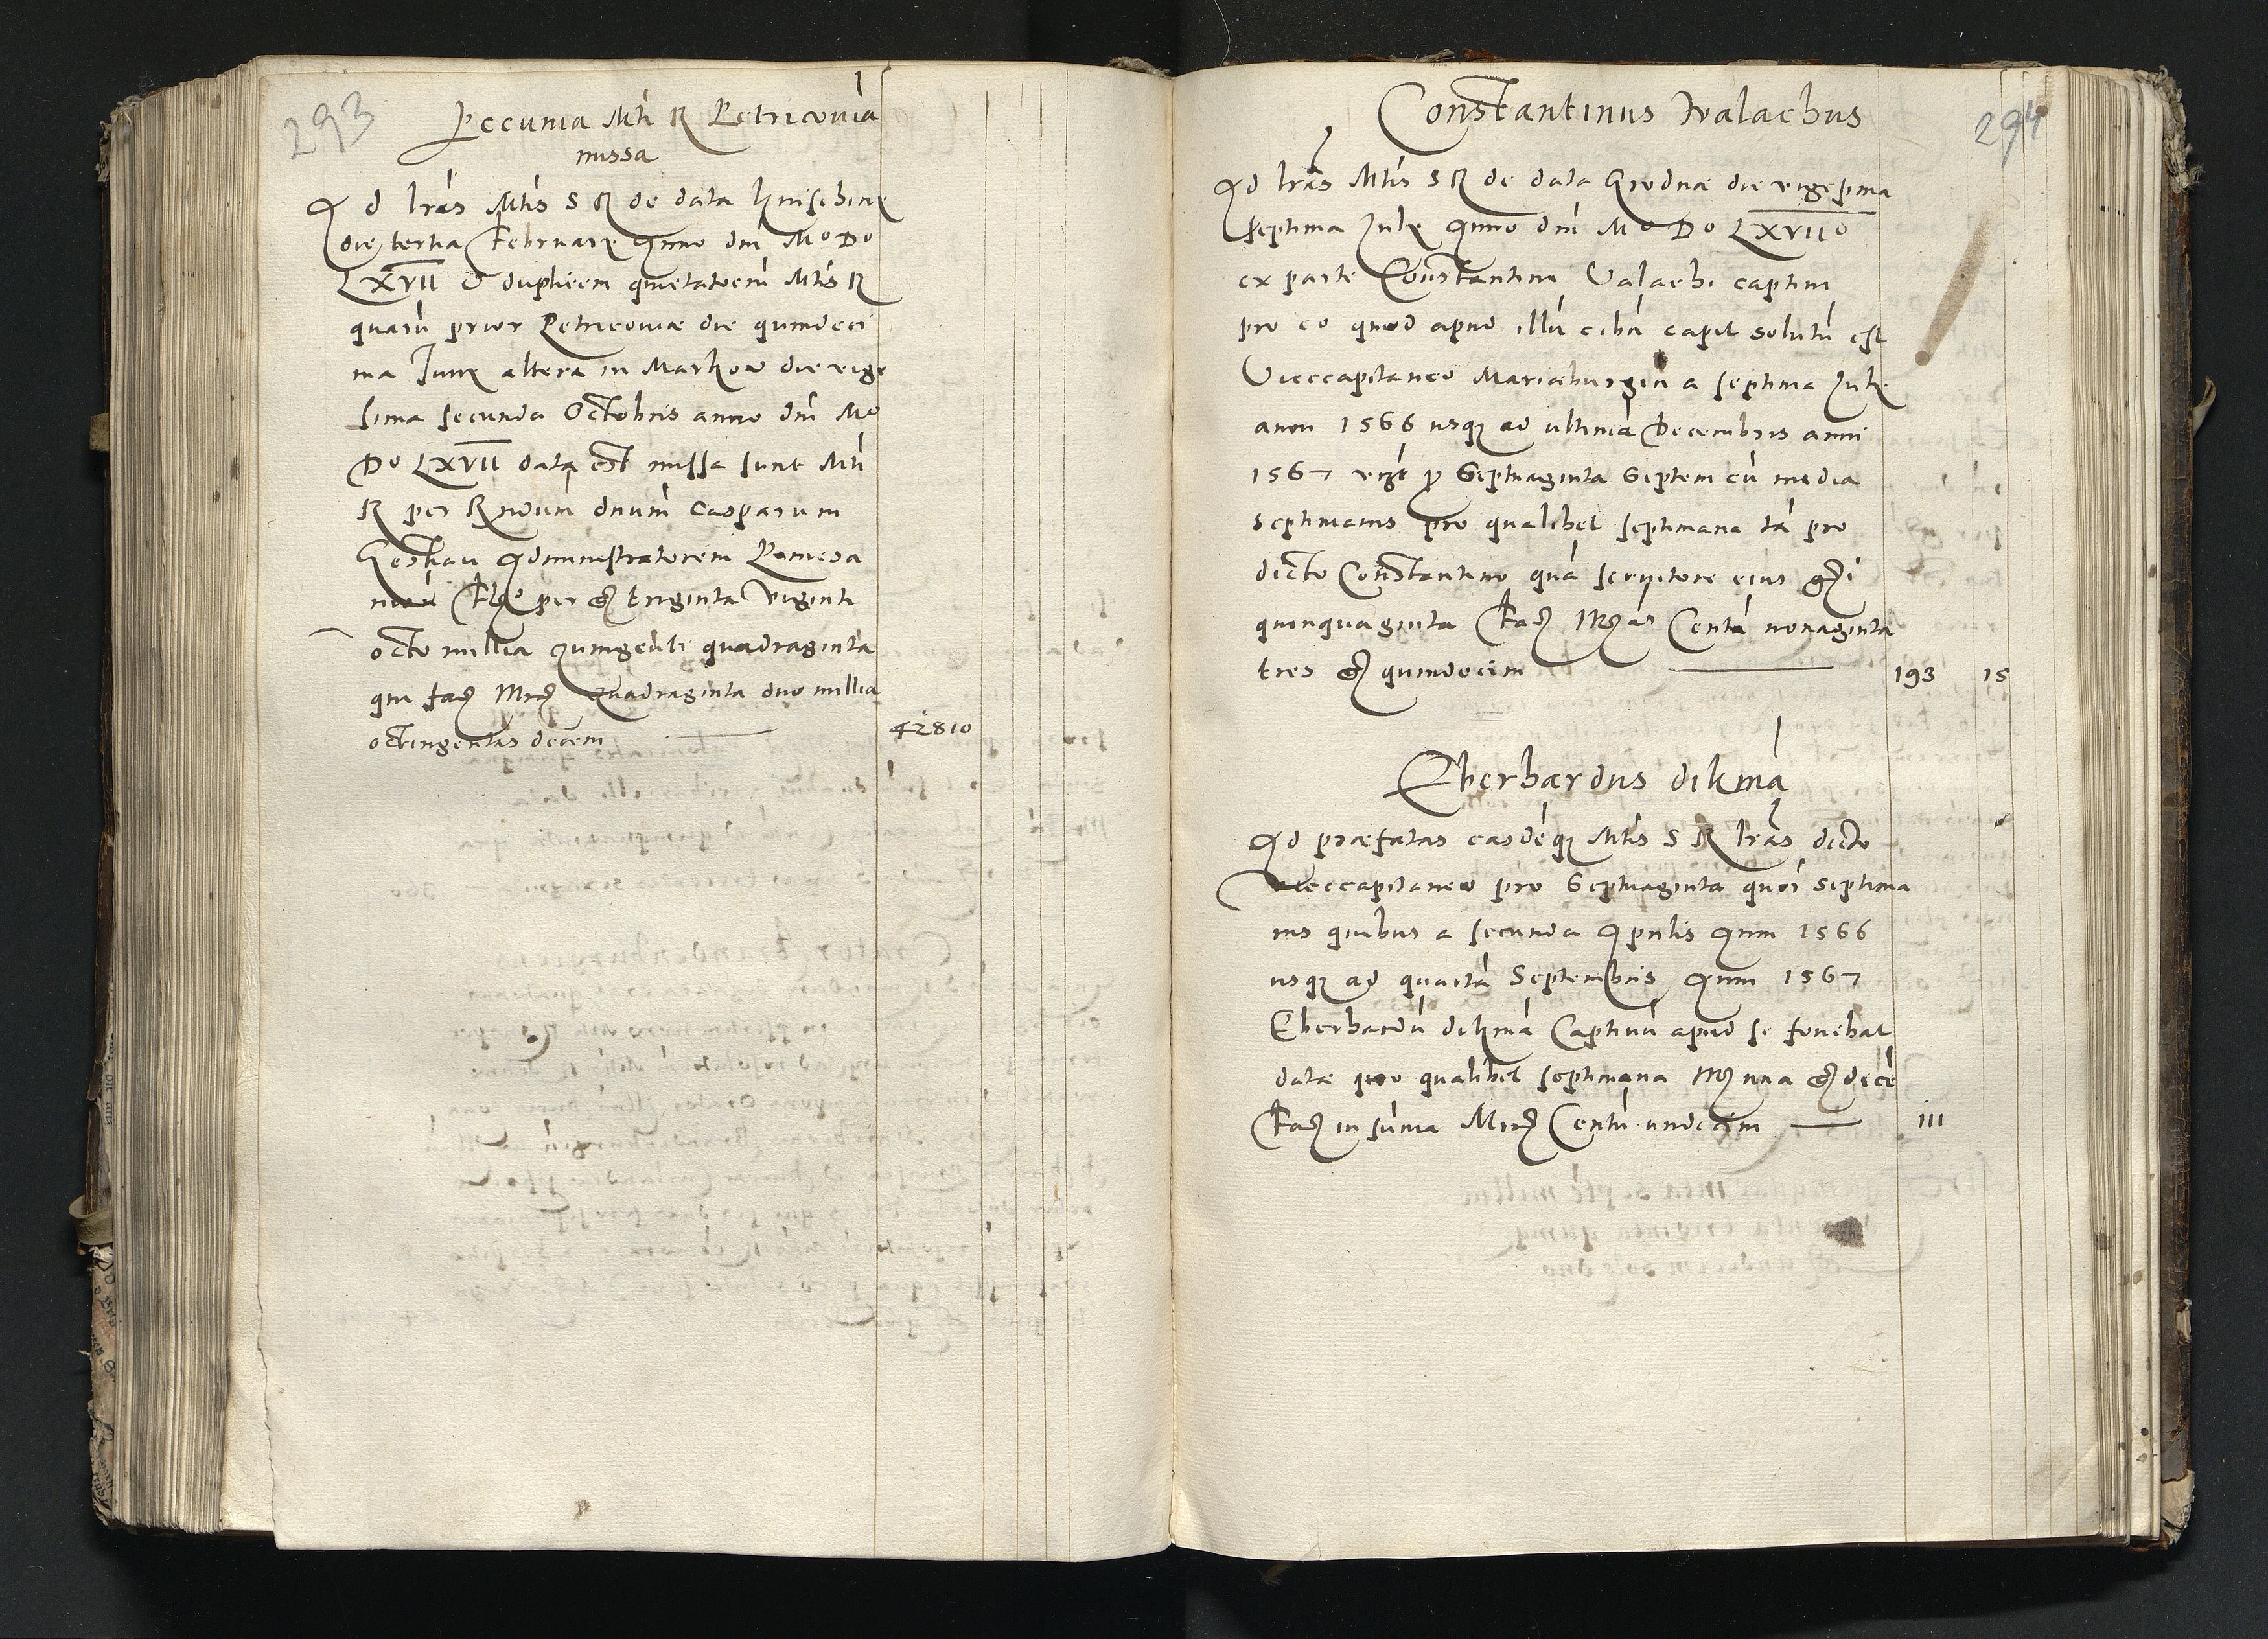 293
Pecunia Mti R Petricovia
missa
Ad lras Mtis S R de data Knischine
die tertia Februarii Anno dni Mo Do
LXVII & duplicem quietatoem Mtis R
quaru prior Petricoviæ die quindeci
ma Junii altera in Markow die vige
sima secunda Octobris anno dni Mo
Do LXVII data est missa sunt Mti
R per Rndum dnum Casparum
Geskau Administratorem Pomesa
niæ flo per gr triginta Viginti
octo millia quingenti quadraginta
qui fac Mrc quadraginta duo millia
octingentas decem — 42810
294
Constantinus Walachus
Ad lras Mtis S R de data Grodnæ die vigesima
septima Julii Anno dni Mo Do LXVIIo
ex parte Constantini Valachi captivi
pro eo quod apud illu cibu capit solutu est
Vicecapitaneo Mariæburgen a septima Julii
anni 1566 usq ad ultima Decembris anni
1567 vigt p Septuaginta Septem cu media
septimanis pro qualibet septimana ta pro
dicto Constantino qua servitore eius gri
quinquaginta fac Mrcas Centu nonaginta
tres gr quindecim — 193 15
Eberhardus dikma
Ad præfatas easdeq Mtis S R lras dicto
vicecapitaneo pro Septuaginta quor septima
nis quibus a secunda Aprilis Anni 1566
usq ad quarta Septembris Anni 1567
Eberhardu dikma Captivu apud se fovebat
datæ pro qualibet septimana Mrc una gr dece
fac in suma Mrc Centu undecim — 111